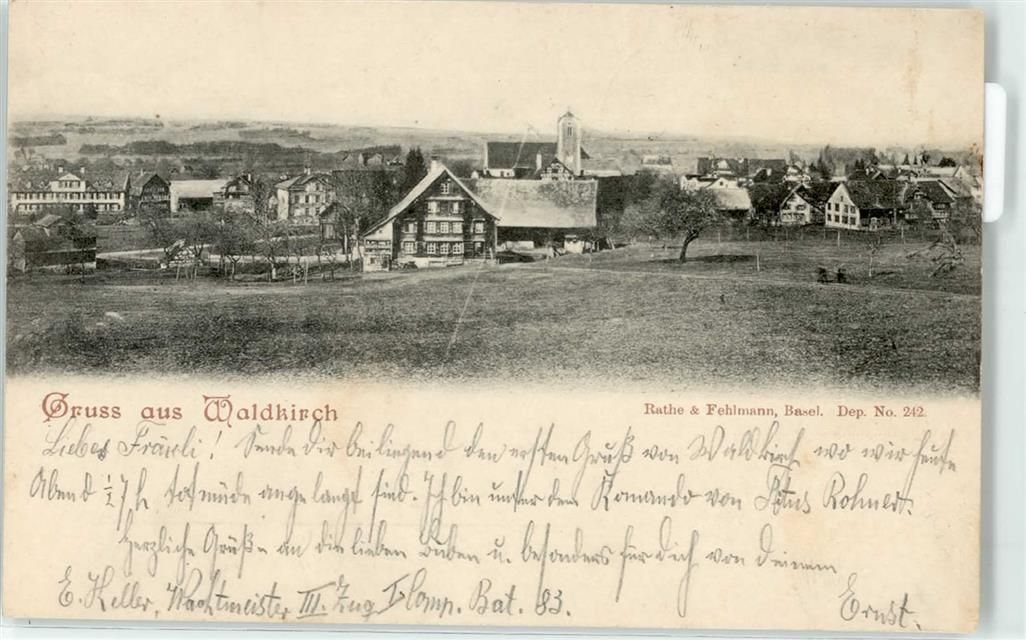 Gruss aus Waldkirch
Rathe & Fehlmann, Basel. Dep. No. 242.
Liebes Fräuli! Sende Dir beiliegend den ersten Gruß von Waldkirch wo wir heute
Abend ½ 7 h todmüde angelangt sind. Ich bin unter dem Komando von Titus Rohner.
Herzliche Grüße an die lieben Buben u. besonders für Dich von deinem
E. Keller, Wachtmeister, III. Zug I Comp. Bat. 83.
Ernst.